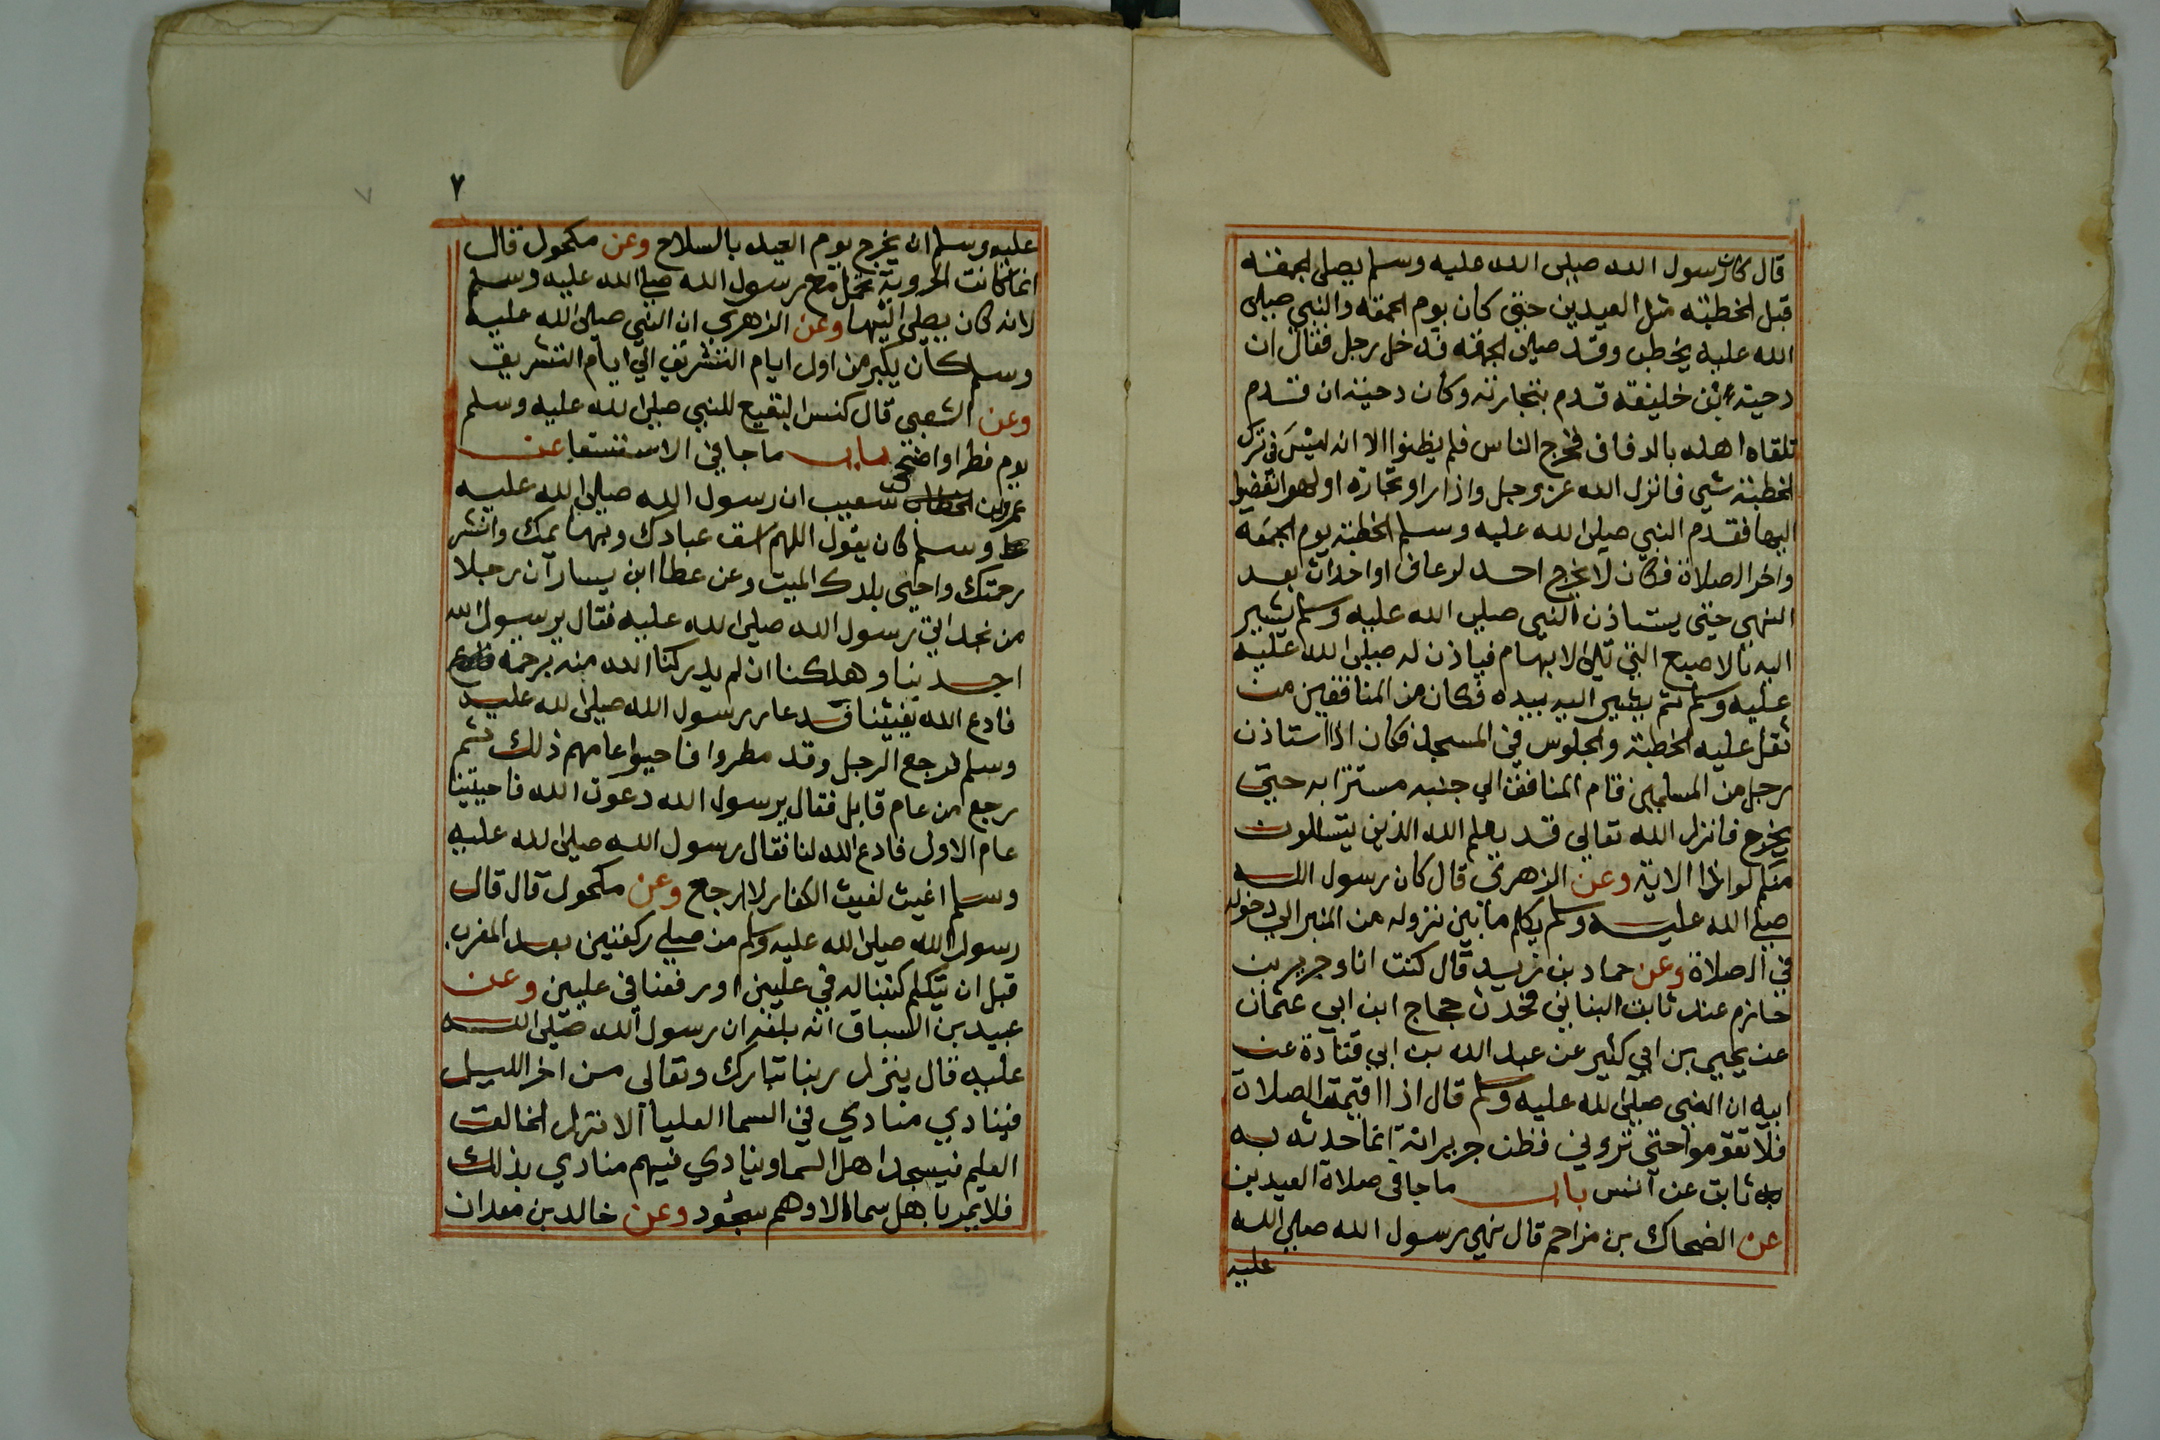 قال كان رسول الله صلى الله عليه وسلم يصلى الجمعة
قبل الخطبة مثل العيدين حتى كان يوم الجمعة والنبي صلى
الله عليه يخطب وقد صلى الجمعة فدخل رجل فقال ان
دحية بن خليفة قدم بتجارته وكان دحية ان قدم
تلقاه اهله بالدفاف فخرج الناس فلم يظنوا الا انه ليس فى ترك
الخطبة شى فانزل الله عز وجل واذا راو تجارة او لهوا انفضوا
اليها فقدم النبي صلى الله عليه وسلم الخطبة يوم الجمعة
واخر الصلاة فكان لا يخرج احد لرعاف او احداث بعد
النهى حتى يستاذن النبي صلى الله عليه وسلم يشير
اليه بالاصبع التي تلى الابهام فياذن له صلى الله عليه
عليه وسلم ثم يشير اليه بيده فكان من المنافقين من
ثقل عليه الخطبة والجلوس في المسجد فكان اذا استاذن
رجل من المسلمين قام المنافق الي جنبه مستترا به حتى
يخرج فانزل الله تعالى قد يعلم الله الذين يتسللون
منكم لواذا الاية وعن الزهري قال كان رسول الله
صلى الله عليه وسلم يكلم ما بين نزوله من المنبر الي دخوله
في الصلاة وعن حماد بن زيد قال كنت انا وجرير بن
حازم عند ثابت البناني فحدث حجاج ابن ابي عثمان
عن يحيى بن ابي كثير عن عبد الله بن ابي قتادة عن
ابيه ان النبى صلى الله عليه وسلم قال اذا اقيمة الصلاة
فلا تقوموا حتى تروني فظن جرير انه انما حدثه به
ثابت عن انس باب ما جا فى صلاة العيدين
عن الضحاك بن مزاحم قال نهى رسول الله صلى الله
عليه
٧
عليه وسلم ان يخرج يوم العيد بالسلاح وعن مكحول قال
انما كانت الحروبة تحمل مع رسول الله صلى الله عليه وسلم
لانه كان يصلى اليها وعن الزهري ان النبي صلى الله عليه
وسلم كان يكبر من اول ايام التشريق الي ايام التشريق
وعن الشعبى قال كنس البقيع للنبي صلى الله عليه وسلم
يوم فطر او اضحى باب ما جا في الاستسقا عن
عمرو بن شعيب ان رسول الله صلى الله عليه
وسلم كان يقول اللهم اسق عبادك وبهائمك وانشر
رحمتك واحيى بلدك الميت وعن عطا ابن يسار ان رجلا
من نجد اتى رسول الله صلى الله عليه فقال يرسول الله
اجدبنا وهلكنا ان لم يدركنا الله منه برحمة
فادع الله يغيثنا فدعا رسول الله صلى الله عليه
وسلم فرجع الرجل وقد مطروا فاحيوا عامهم ذلك ثم
رجع من عام قابل فقال يرسول الله دعوت الله فاحيينا
عام الاول فادع الله لنا فقال رسول الله صلى الله عليه
وسلم اغيث لغيث الكفار لا ارجع وعن مكحول قال قال
رسول الله صلى الله عليه وسلم من صلى ركعتين بعد المغرب
قبل ان يتكلم كتبنا له في عليين او رفعنا في عليين وعن
عبيد بن السباق انه بلغه ان رسول الله صلى الله
عليه قال ينزل ربنا تبارك وتعالى من اخر الليل
فينادي منادي في السما العليا الا نزل الخالق
العليم فيسجد اهل السما وينادي فيهم منادي بذلك
فلا يمر باهل سماء الا وهم سجود وعن خالد بن معدان